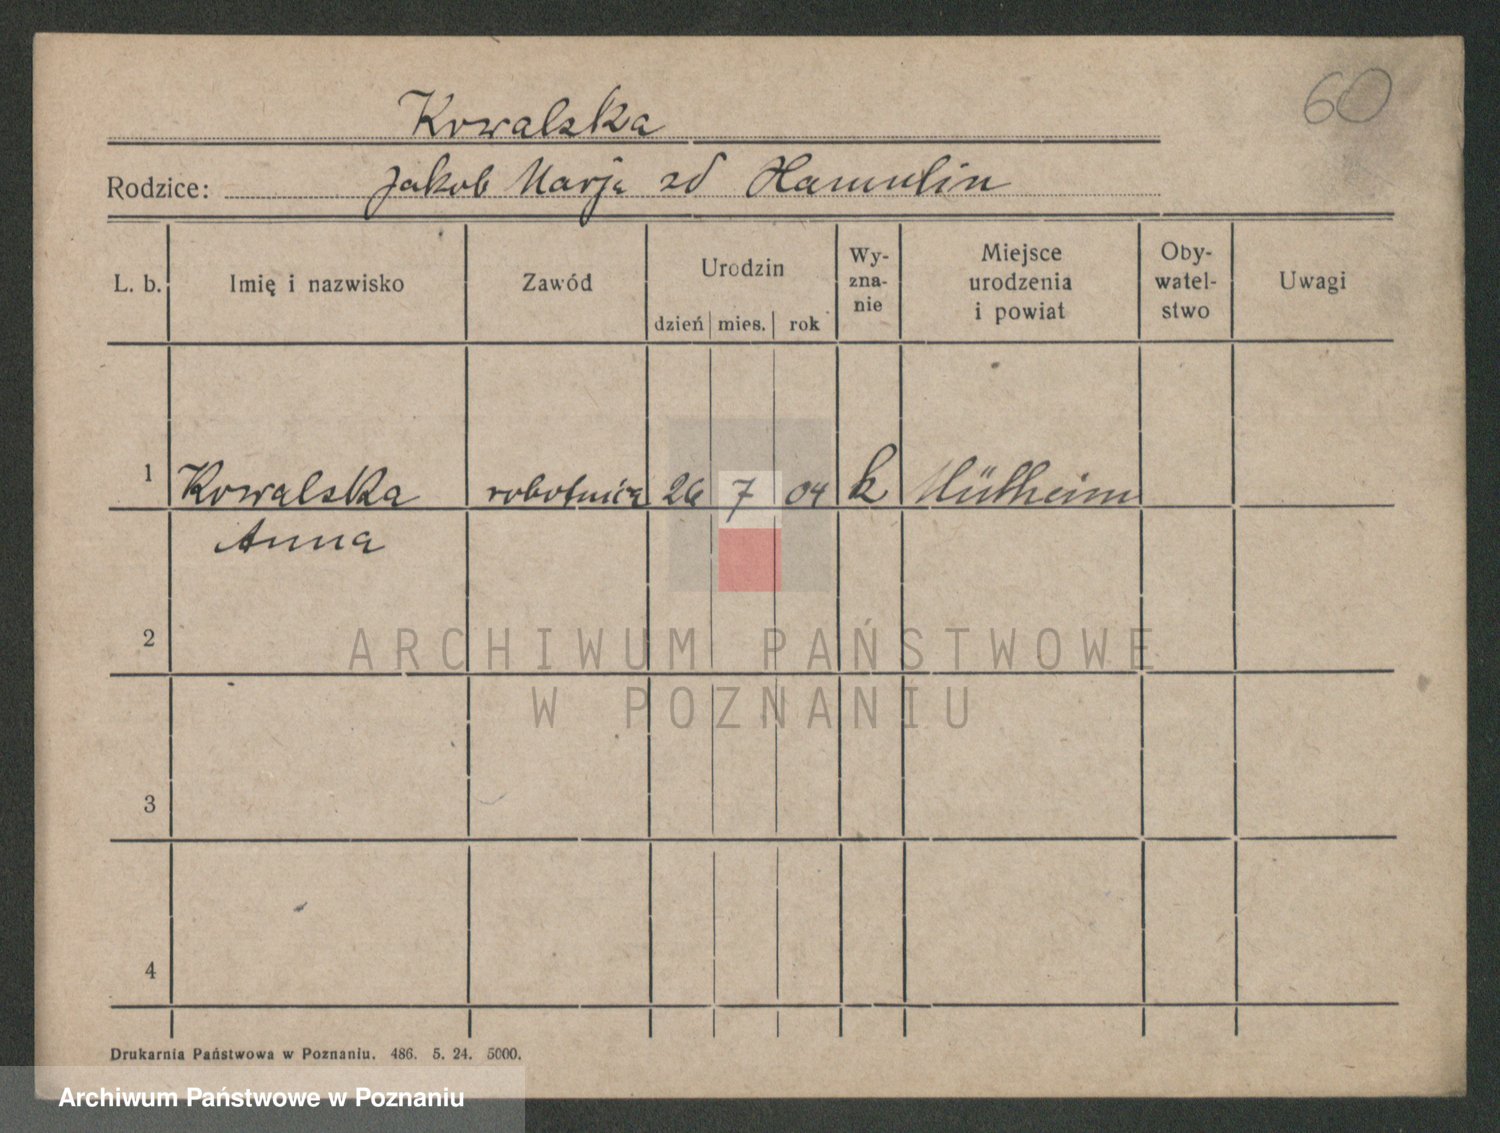 60
Kowalska
Rodzice: Jakob Marja zd Hamulin
L. b. Imię i nazwisko Zawód Urodzin dzień mies. rok Wy-znanie Miejsce urodzenia i powiat Oby-watel-stwo Uwagi
1 Kowalska robotnica 26 7 04 k Mülheim
Anna
2
ARCHIWUM PAŃSTWOWE
W POZNANIU
3
4
Drukarnia Państwowa w Poznaniu. 486. 5. 24. 5000.
Archiwum Państwowe w Poznaniu